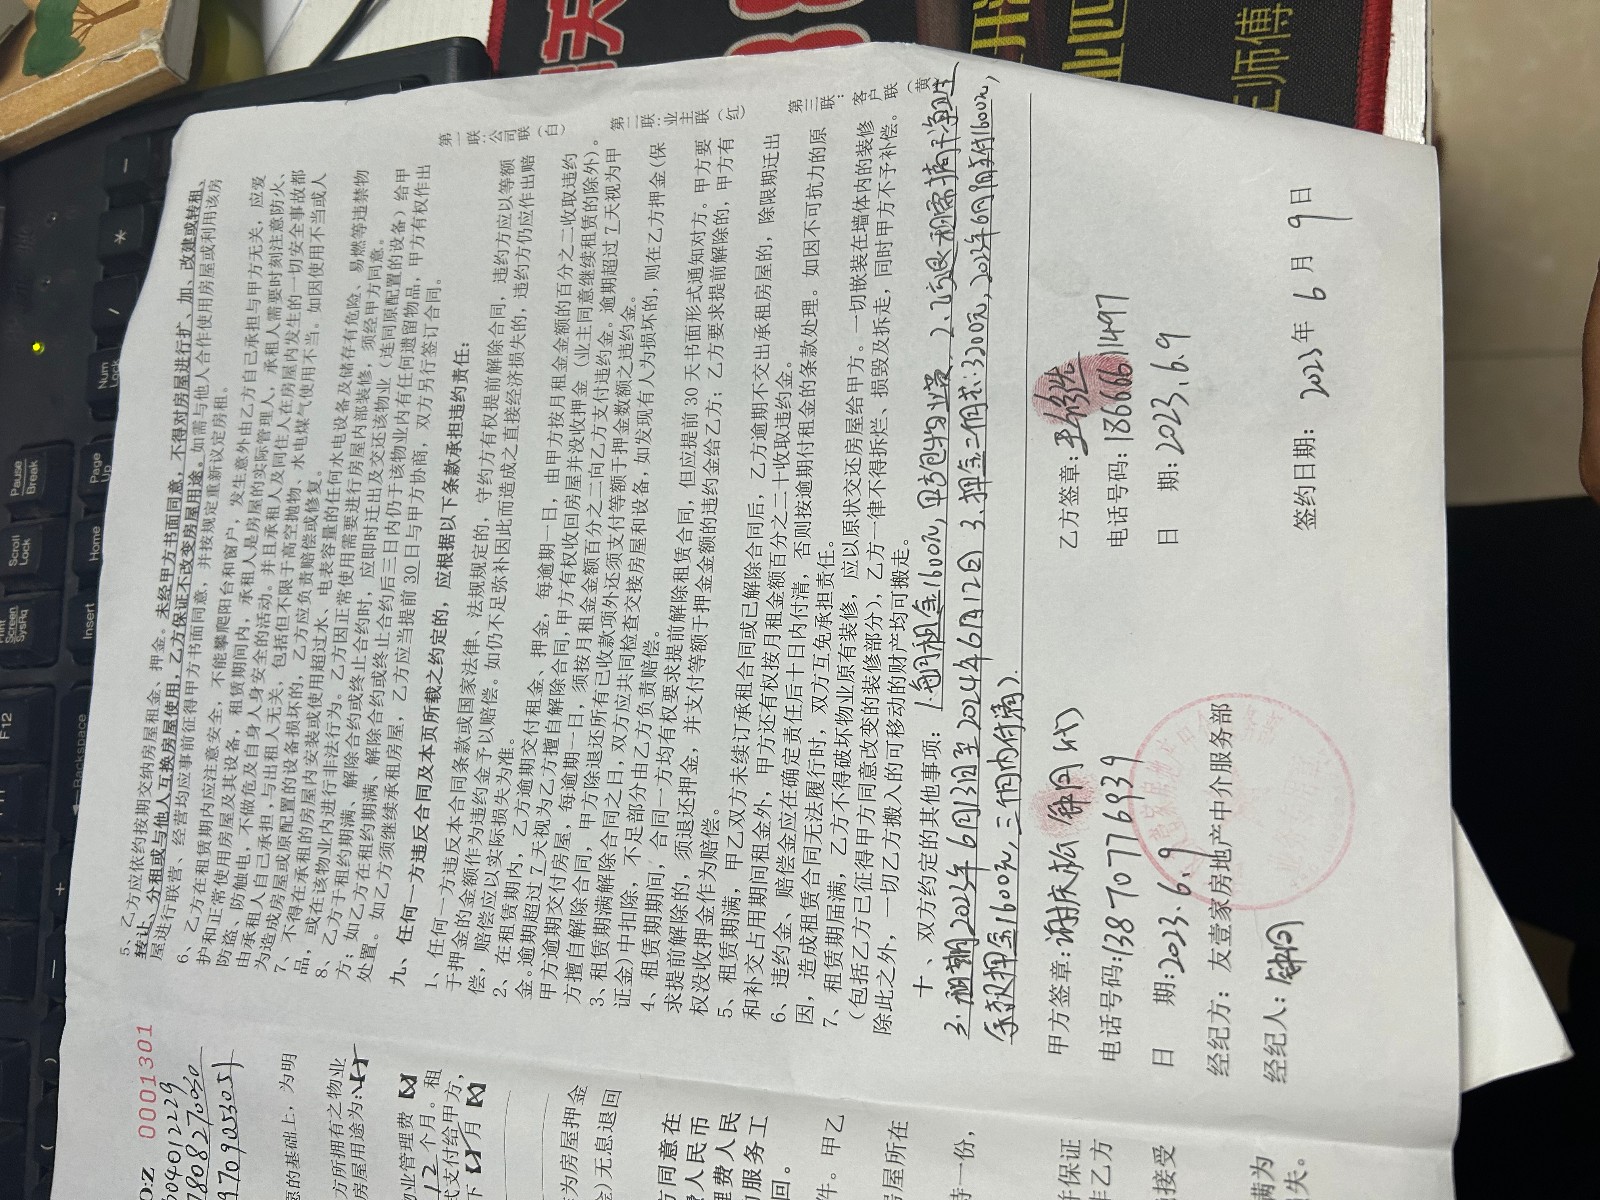 5、乙方应依约按期交纳房屋租金、押金。未经甲方书面同意，不得对房屋进行扩、加、改建或转租、
转让、分租或与他人互换房屋使用，乙方保证不改变房屋用途。如需与他人合作使用房屋或利用该房
屋进行联营、经营均应事前征得甲方书面同意，并按规定重新议定房租。
6、乙方在租赁期内应注意安全，不能攀爬阳台和窗户，发生意外由乙方自己承担与甲方无关，应爱
护和正常使用房屋及其设备，租赁期间内，承租人是房屋的实际管理人，承租人需要时刻注意防火、
防盗、防触电，不做危及自身人身安全的活动。并且承租人及同住人在房屋内发生的一切安全事故都
由承租人自己承担，与出租人无关，包括但不限于高空抛物、水电煤气使用不当。如因使用不当或人
为造成房屋或原配置的设备损坏的，乙方应负责赔偿或修复。
7、不得在承租的房屋内安装或使用超过水、电表容量的任何水电设备及储存有危险、易燃等违禁物
品，或在该物业内进行非法行为。乙方因正常使用需要进行房屋内部装修，须经甲方同意。
8、乙方于租约期满、解除合约或终止合约时，应即时迁出及交还该物业（连同原配置的设备）给甲
方；如乙方在租约期满、解除合约或终止合约后三日内仍于该物业内有任何遗留物品，甲方有权作出
处置。如乙方须继续承租房屋，乙方应当提前30日与甲方协商，双方另行签订合同。
九、任何一方违反合同及本页所载之约定的，应根据以下条款承担违约责任：
1、任何一方违反本合同条款或国家法律、法规规定的，守约方有权提前解除合同，违约方应以等额
于押金的金额作为违约金予以赔偿。如仍不足弥补因此而造成之直接经济损失的，违约方仍应作出赔
偿，赔偿应以实际损失为准。
2、在租赁期内，乙方逾期交付租金、押金，每逾期一日，由甲方按月租金金额的百分之二收取违约
金。逾期超过7天视为乙方擅自解除合同，甲方有权收回房屋并没收押金（业主同意继续租赁的除外）。
甲方逾期交付房屋，每逾期一日，须按月租金金额百分之二向乙方支付违约金。逾期超过7天视为甲
方擅自解除合同，甲方除退还所有已收款项外还须支付等额于押金数额之违约金。
3、租赁期满解除合同之日，双方应共同检查交接房屋和设备，如发现有人为损坏的，则在乙方押金（保
证金）中扣除，不足部分由乙方负责赔偿。
4、租赁期期间，合同一方均有权要求提前解除租赁合同，但应提前30天书面形式通知对方。甲方要
求提前解除的，须退还押金，并支付等额于押金金额的违约金给乙方；乙方要求提前解除的，甲方有
权没收押金作为赔偿。
5、租赁期满，甲乙双方未续订承租合同或已解除合同后，乙方逾期不交出承租房屋的，除限期迁出
和补交占用期间租金外，甲方还有权按月租金额百分之二十收取违约金。
6、违约金、赔偿金应在确定责任后十日内付清，否则按逾期付租金的条款处理。如因不可抗力的原
因，造成租赁合同无法履行时，双方互免承担责任。
7、租赁期届满，乙方不得破坏物业原有装修，应以原状交还房屋给甲方。一切嵌装在墙体内的装修
（包括乙方已征得甲方同意改变的装修部分），乙方一律不得拆烂、损毁及拆走，同时甲方不予补偿。
除此之外，一切乙方搬入的可移动的财产均可搬走。
十、双方约定的其他事项：1.每月租金1600元，甲方包物业费 2.乙方退租需搞干净卫生
3.租期2023年6月13日至2024年6月12日 3.押金二个月共:3200元，2023年6月9日前付1600元，
余款押金1600元，三个月内付清）.
甲方签章：谢庆松 钟同（代）
电话号码：13870776939
日 期：2023.6.9
经纪方：友壹家房地产中介服务部
经纪人：钟同
乙方签章：
电话号码：18666611497
日 期：2023.6.9
签约日期： 2023年 6 月 9 日
第一联：公司联（白）
第二联：业主联（红）
第三联：客户联（黄
0001301
愿的基础上，为明
方所拥有之物业
房屋用途为：
物业管理费
12 个月。租
式支付给甲方，
为房屋押金
金）无息退回
方同意在
人民币
理费人民
服务工
回。
件。甲乙
房屋所在
持一份，
并保证
非乙方
接受
满为
失。
Pause
Break
Scroll
Lock
Screen
SysRq
F12
Page
Up
Home
Insert
Num
Lock
Backspace
/
*
-